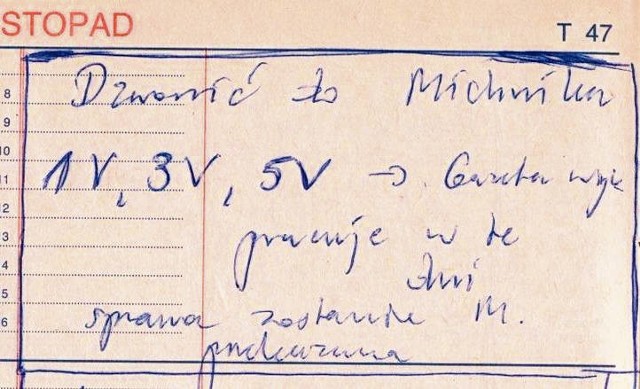 STOPAD
T 47
8
9
10
11
12
3
4
5
6
Dzwonić do Michnika
1V, 3V, 5V → Gazeta wyb
pracuje w te
dni
sprawa zostanie M.
przekazana